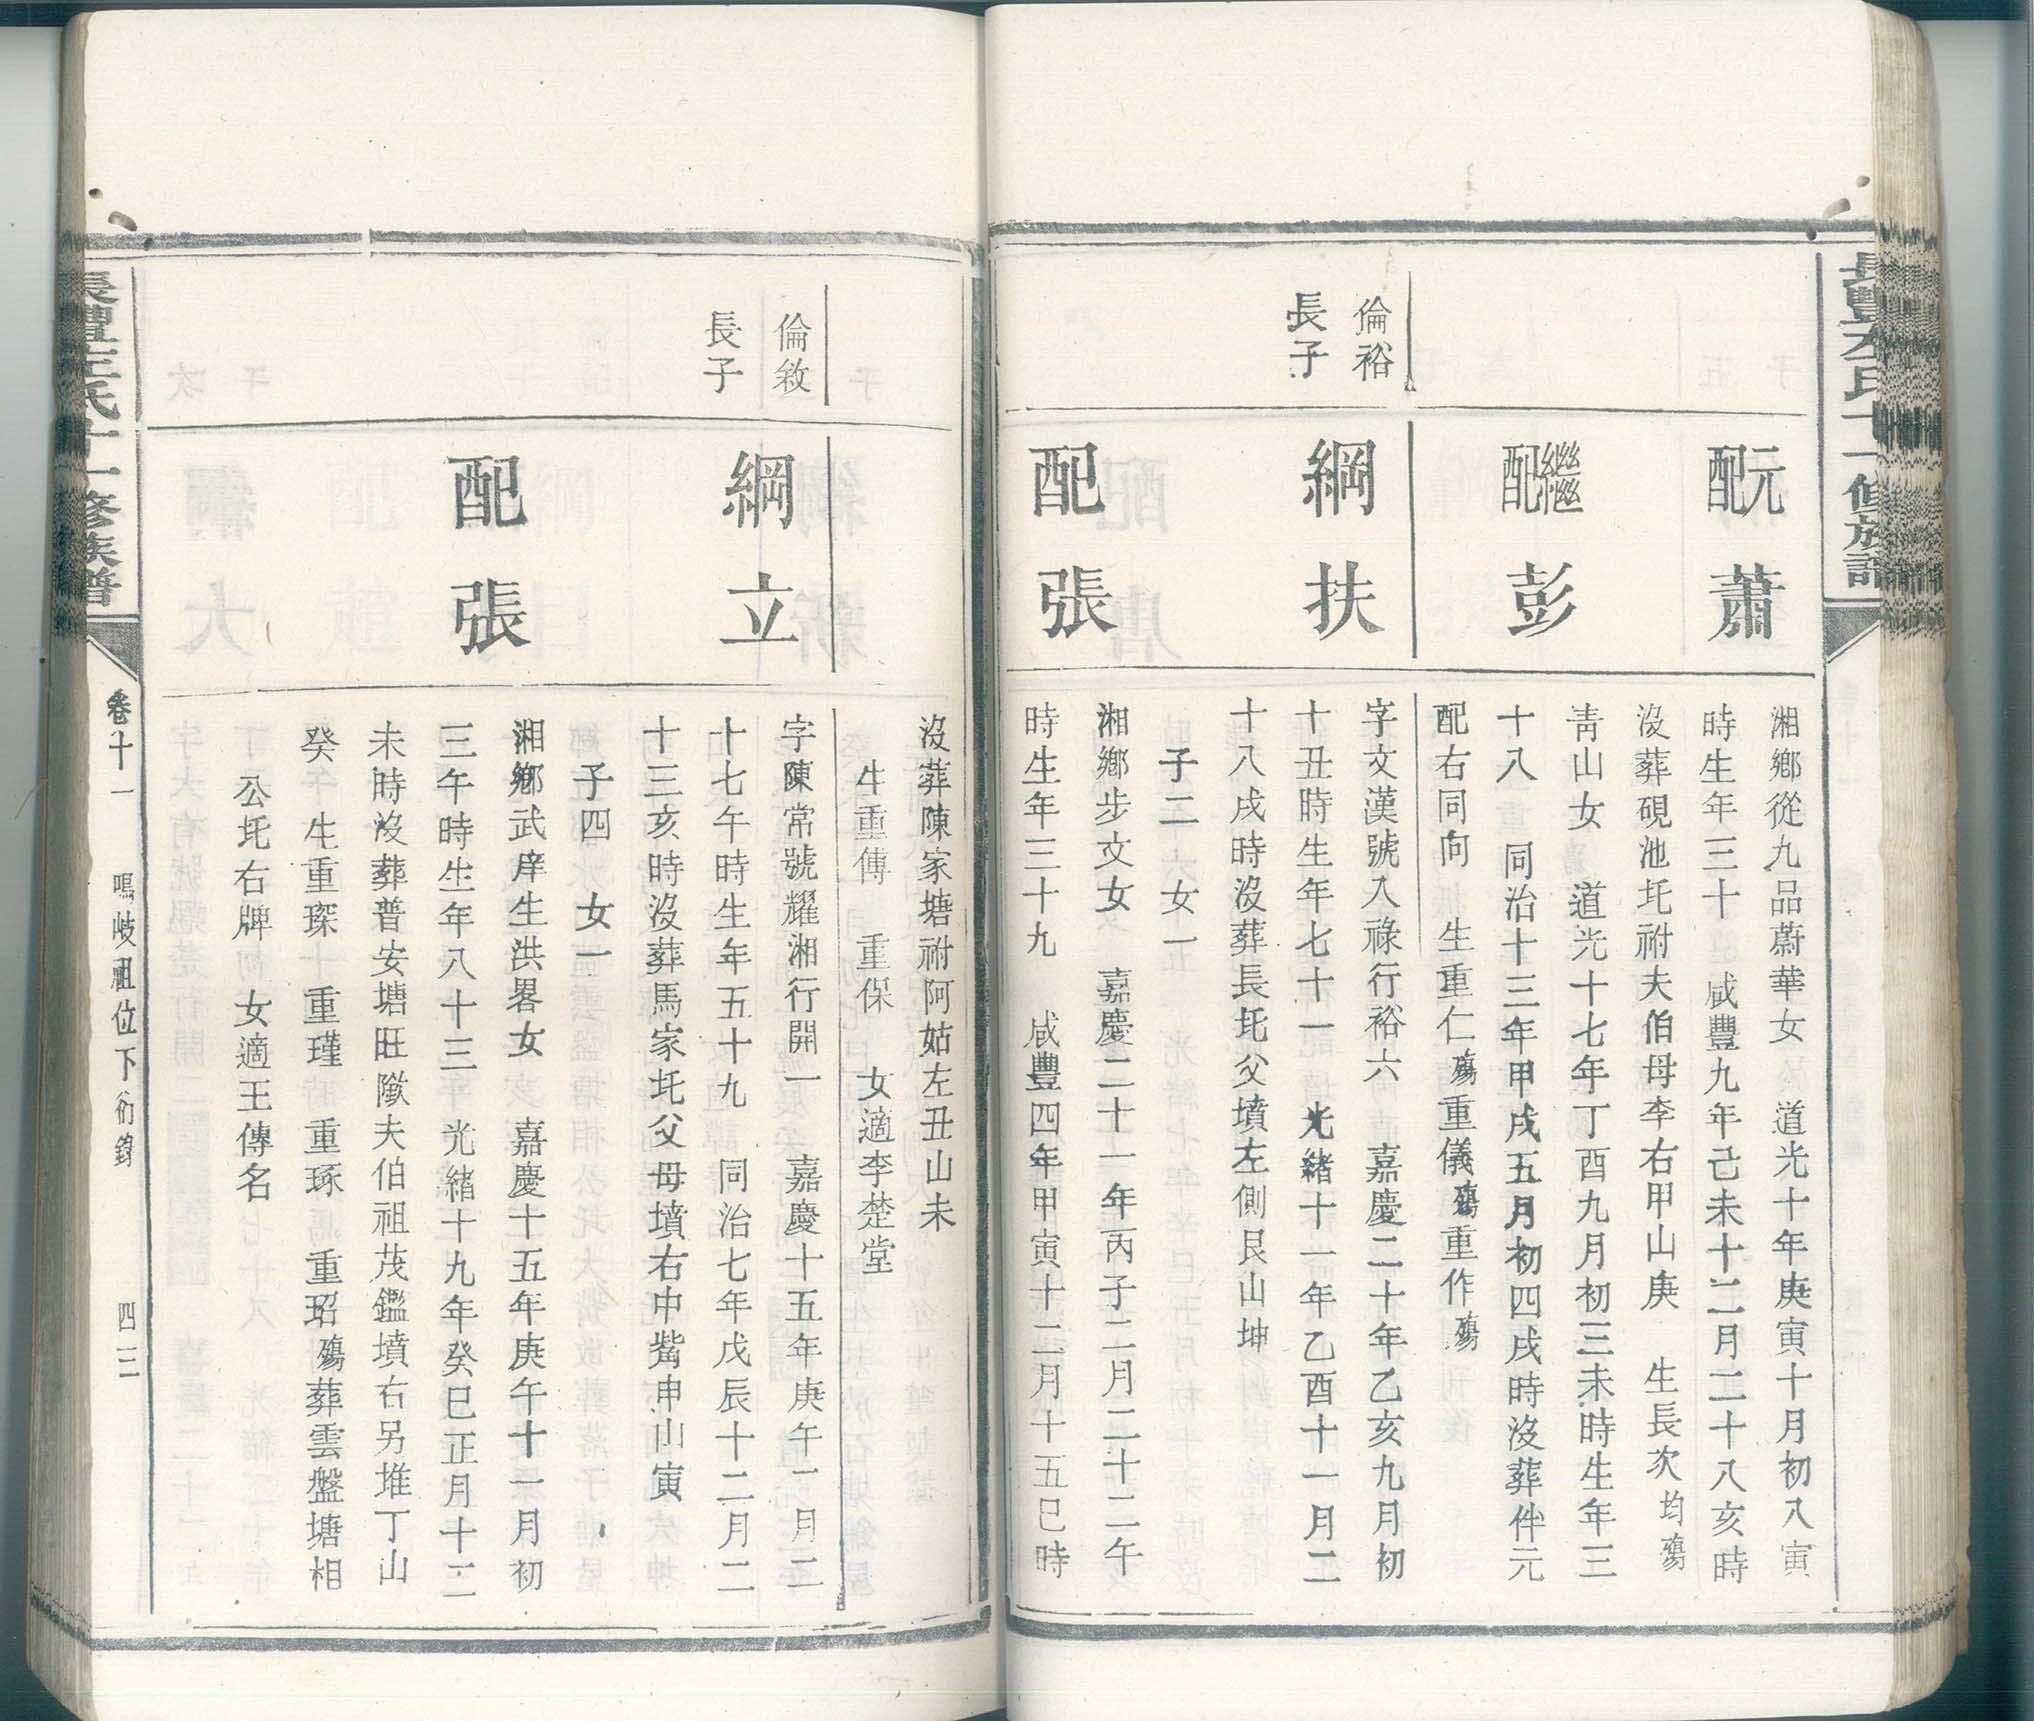 元配
蕭
湘鄉從九品蔚華女　道光十年庚寅十月初八寅
時生年三十　咸豐九年己未十二月二十八亥時
沒葬硯池圫祔夫伯母李右甲山庚　生長次均殤
繼配
彭
靑山女　道光十七年丁酉九月初三未時生年三
十八　同治十三年甲戌五月初四戌時沒葬伴元
配右同向　生重仁殤重儀殤重作殤
倫裕
長子
綱扶
字文漢號入祿行裕六　嘉慶二十年乙亥九月初
十丑時生年七十一　光緒十一年乙酉十一月二
十八戌時沒葬長圫父墳左側艮山坤
子二　女一
配張
湘鄉步文女　嘉慶二十一年丙子二月二十二午
時生年三十九　咸豐四年甲寅十二月十五巳時
沒葬陳家塘祔阿姑左丑山未
生重傅　重保　女適李楚堂
倫敘
長子
綱立
字陳常號耀湘行開一　嘉慶十五年庚午二月二
十七午時生年五十九　同治七年戊辰十二月二
十三亥時沒葬馬家圫父母墳右中嘴申山寅
子四　女一
配張
湘鄉武庠生洪畧女　嘉慶十五年庚午十一月初
三午時生年八十三　光緒十九年癸巳正月十二
未時沒葬普安塘旺隞夫伯祖茂鑑墳右另堆丁山
癸　生重琛　重瑾　重琢　重玿殤葬雲盤塘相
公圫右牌　女適王傳名
長豐左氏十一修族譜
卷十一
鳴岐祖位下衍鑄
四三